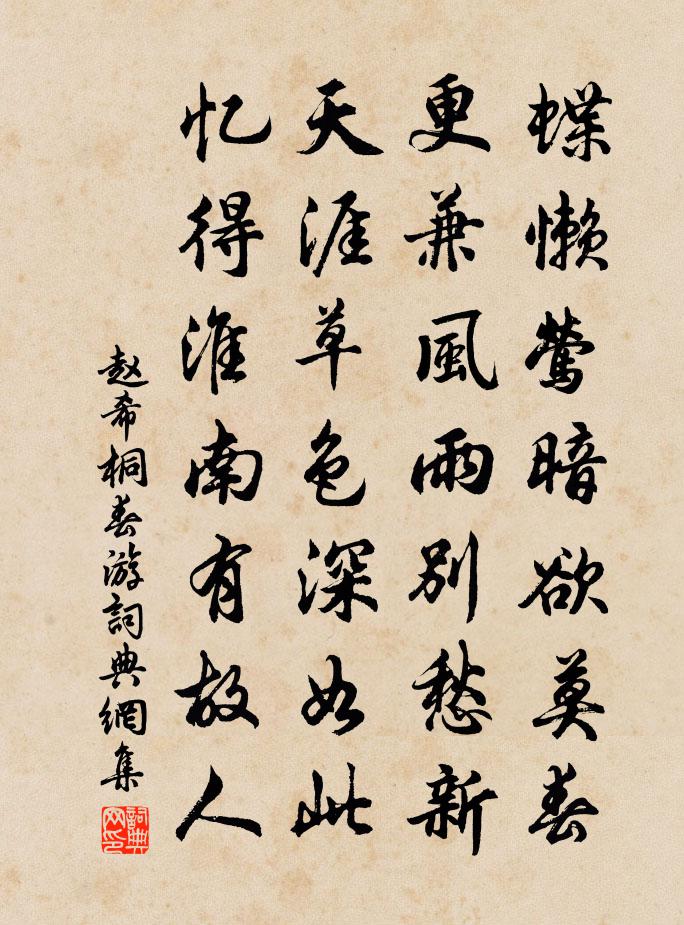 蝶懶鶯暗欲莫春
更兼風雨別愁新
天涯草色深如此
忆得淮南有故人
赵希桐春游詞典網集
詞典网印